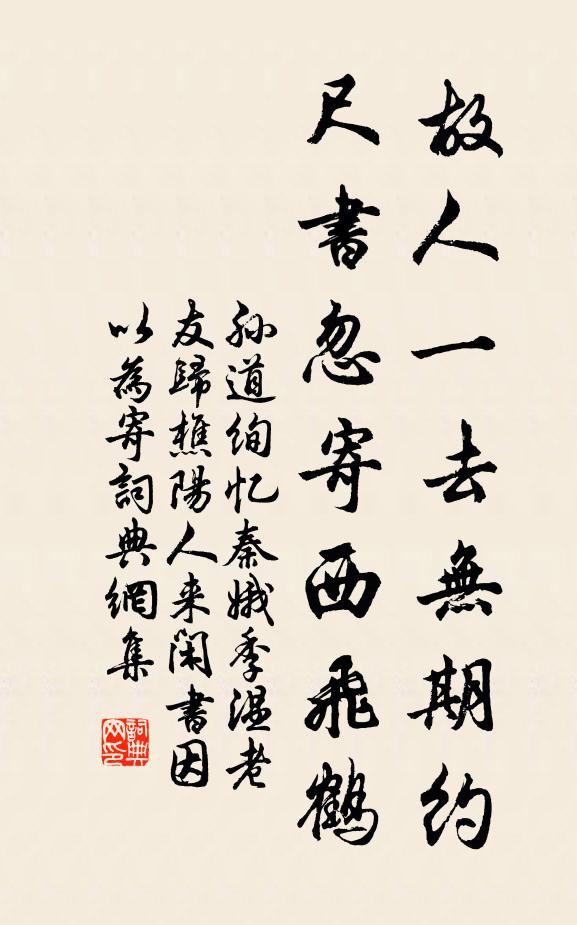 故人一去無期約
尺書忽寄西飛鶴
孙道绚忆秦娥季温老
友歸樵陽人来閑書因
以為寄詞典網集
詞典
网印